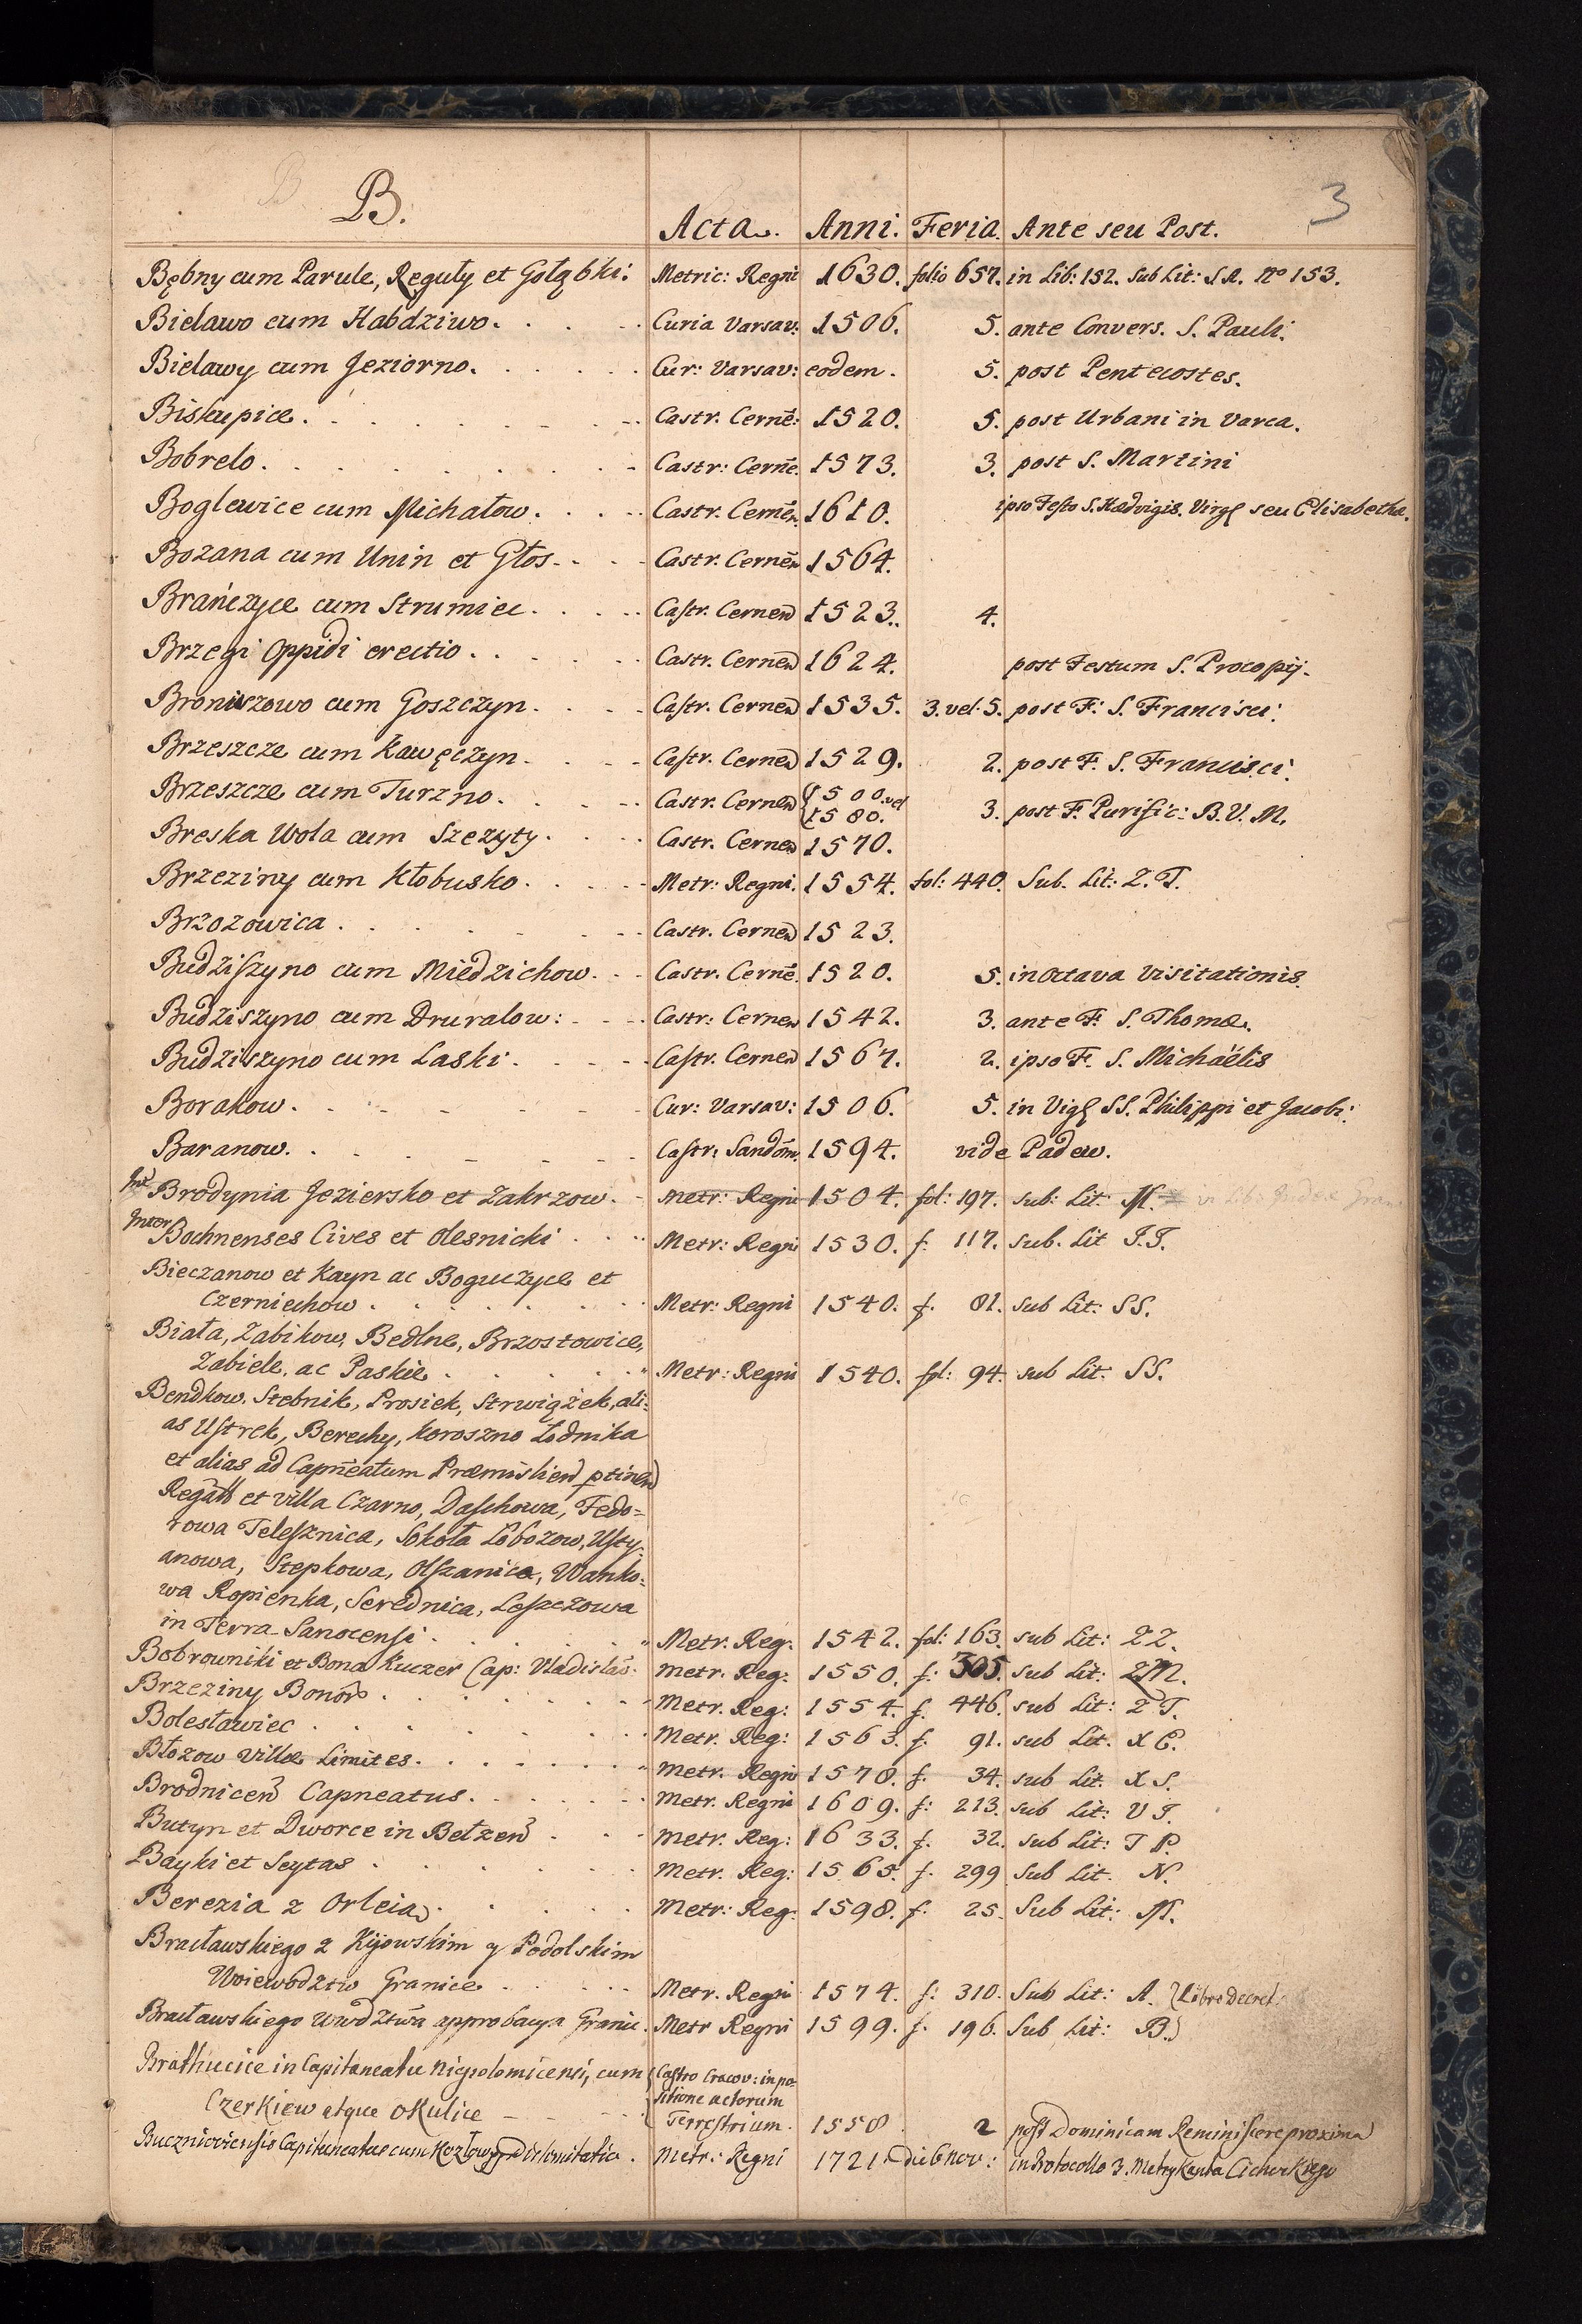 3
B.
Acta. Anni. Feria. Ante seu Post.
Bębny cum Parule, Reguły et Gołąbki: Metric: Regni 1630. folio 657. in Lib: 152. Sub Lit: S A. No 153.
Bielawo cum Habdziwo. Curia Varsav: 1506. 5. ante Convers. S. Pauli.
Bielawy cum Jeziorno. Cur: Varsav: eodem. 5. post Pentecostes.
Biskupice. Castr. Cernē: 1520. 5. post Urbani in Varca.
Bobrelo. Castr: Cernē. 1573. 3. post S. Martini
Boglewice cum Michałow. Castr. Cernēn. 1610. ipso Festo S. Hedvigis. Virg. seu Elisabetha.
Bozana cum Unin et Głos. Castr. Cernēn 1564.
Brańczyce cum Strumiec. Castr. Cernen 1523. 4.
Brzegi Oppidi erectio. Castr. Cernen 1624. post Festum S. Procopij.
Broniszowo cum Goszczyn. Castr. Cernen 1535. 3. vel 5. post F. S. Francisci.
Brzeszcze cum Kawęczyn. Castr. Cernen 1529. 2. post F. S. Francisci.
Brzeszcze cum Turzno. Castr. Cernen {1500. vel 1580. 3. post F. Purific: B. V. M.
Breska Wola cum Szczyty. Castr. Cernen 1570.
Brzeziny cum Kłobusko. Metr: Regni. 1554. fol: 440. Sub. Lit: Z. T.
Brzozowica. Castr. Cernen 1523.
Budziszyno cum Miedzichow. Castr. Cernē. 1520. 5. in Octava Visitationis.
Budziszyno cum Druralow: Castr: Cernen 1542. 3. ante F. S. Thomæ.
Budziszyno cum Laski. Castr. Cernen 1567. 2. ipso F. S. Michaëlis
Borakow. Cur: Varsav: 1506. 5. in Vigl SS. Philippi et Jacobi.
Baranow. Castr: Sandom. 1594. vide Padew.
Int. Brodynia Jeziersko et Zakrzow. Metr: Regni 1504. fol: 197. sub: Lit: M.
Inter Bochnenses Cives et Olesnicki Metr: Regni 1530. f. 117. sub. Lit T.T.
Bieczanow et Kayn ac Boguczyce et
Czerniechow. Metr: Regni 1540. f. 81. sub Lit: SS.
Biała, Zabikow, Bedlne, Brzostowice,
Zabiele, ac Paskie Metr: Regni 1540. fol: 94. sub Lit: SS.
Bendkow. Stebnik, Prosiek, Strwiążek, ali:
as Ustrek, Berechy, Koroszno Łodnika
et alias ad Capneatum Præmislien ptinen
Regāl et villa Czarno, Daschowa, Fedo=
rowa Telesznica, Sokoła Łobozow, Usty.
anowa, Stepkowa, Olszanica, Wanko:
wa Ropienka, Serednica, Leszczowa
in Terra Sanocensi. Metr. Reg. 1542. fol: 163. sub Lit: ZZ.
Bobrowniki et Bona Kuczer Cap: Vladislav: Metr. Reg: 1550. f: 305. sub Lit: ZM.
Brzeziny Bonor. Metr. Reg: 1554. f. 446. sub Lit: Z T.
Bolesławiec. Metr. Reg: 1563. f. 91. sub Lit. X C.
Błozow Villæ Limites. Metr. Regni 1578. f. 34. sub Lit. X S.
Brodnicen Capneatus. Metr. Regni 1609. f: 213. sub Lit: V T.
Butyn et Dworce in Bełzen Metr. Reg: 1633. f. 32. sub Lit: T P.
Bayki et Seytas. Metr. Reg: 1565. f. 299 Sub Lit. N.
Berezia z Orleia. Metr: Reg: 1598. f. 25. Sub Lit: M.
Bracławskiego z Kijowskim y Podolskim
Woiewodztw Granice Metr. Regni 1574. f: 310. Sub Lit: A. } Libro Decret.
Bracławskiego Wwdztwa approbacya Granic. Metr Regni 1599. f. 196. Sub Lit: B. }
Brathucice in Capitaneatu Niepolomicensi, cum { Castro Cracov: in po-
sitione actorum
Czerkiew atque Okulice Terrestrium. 1558. 2 post Dominicam Reminiscere proxima
Buczniovienšis Capitaneatus cum Kozłow Metr: Regni 1721. die 6 Nov: in Protocollo 3. Metrykanta Cichockiego